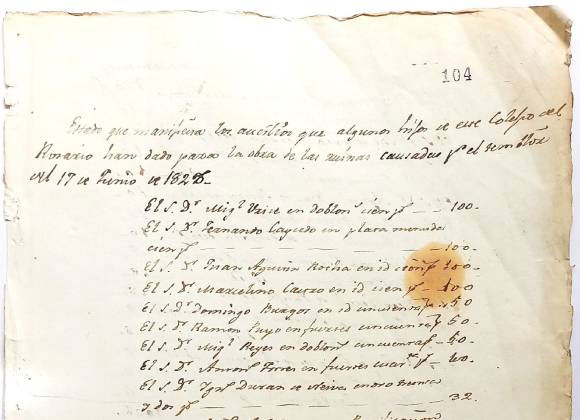 104
Estado que manifiesta los auxilios que algunos hijos de este Colegio del
Rosario han dado para la obra de las ruinas causadas pʳ el temblor
del 17 de Junio de 182
El S. Dʳ Migˡ en doblonˢ cien pˢ — 100-
El S. Dʳ Fernando Caycedo en plata menuda
cien pˢ — 100-
El S. Dʳ Juan Agustin Rocha en id cien pˢ 100-
El S. Dʳ Marcelino Castro en id cien pˢ — 100
El S. Dʳ Domingo Burgos en id cincuenta pˢ 50
El S. Dʳ Ramon en fuertes cincuenta pˢ 50-
El S. Dʳ Migˡ Reyes en doblonˢ cincuenta pˢ — 50-
El S. Dʳ Antonº Torres en fuertes pˢ —
El S. Dʳ Ignº Duran de Neiva en oro treinta
y dos pˢ — 32.